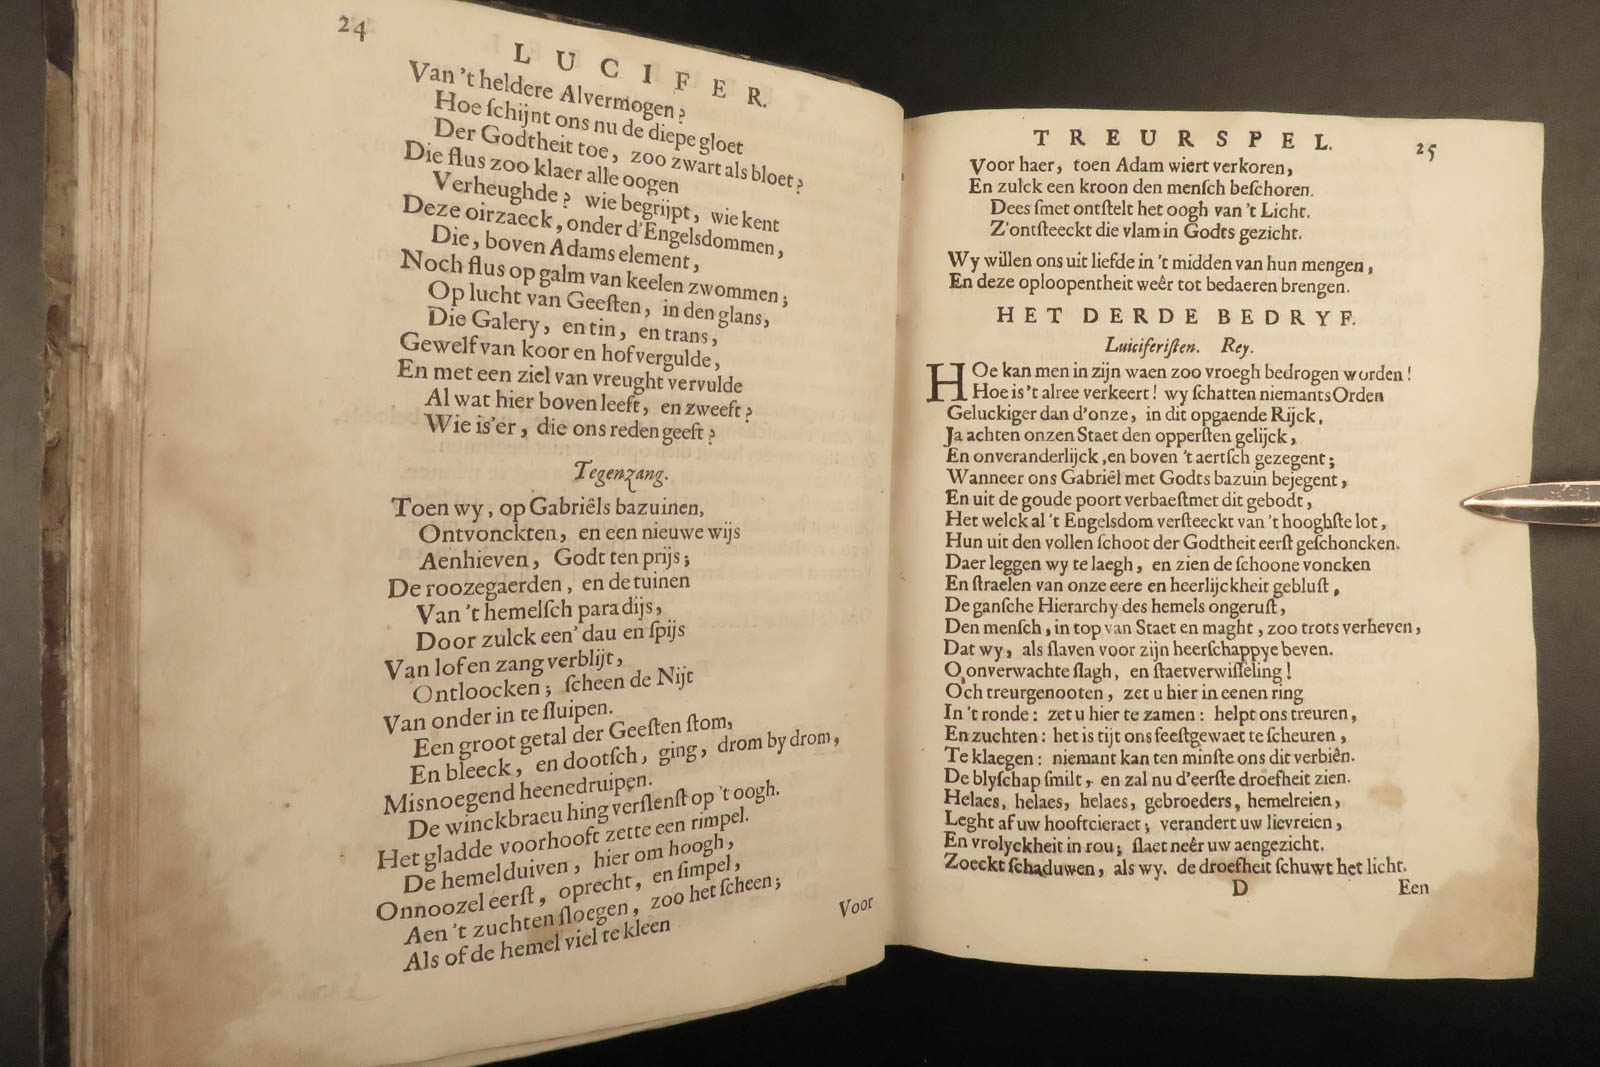 24
LUCIFER.
Van 't heldere Alvermogen?
Hoe ſchijnt ons nu de diepe gloet
Der Godtheit toe, zoo zwart als bloet?
Die flus zoo klaer alle oogen
Verheughde? wie begrijpt, wie kent
Deze oirzaeck, onder d'Engelsdommen,
Die, boven Adams element,
Noch flus op galm van keelen zwommen;
Op lucht van Geeſten, in den glans,
Die Galery, en tin, en trans,
Gewelf van koor en hof vergulde,
En met een ziel van vreught vervulde
Al wat hier boven leeft, en zweeft?
Wie is'er, die ons reden geeft?
Tegenzang.
Toen wy, op Gabriëls bazuinen,
Ontvonckten, en een nieuwe wijs
Aenhieven, Godt ten prijs;
De roozegaerden, en de tuinen
Van 't hemelſch paradijs,
Door zulck een' dau en ſpijs
Van lof en zang verblijt,
Ontloocken; ſcheen de Nijt
Van onder in te ſluipen.
Een groot getal der Geeſten ſtom,
En bleeck, en dootſch, ging, drom by drom,
Misnoegend heenedruipen.
De winckbraeu hing verſlenſt op 't oogh.
Het gladde voorhooft zette een rimpel.
De hemelduiven, hier om hoogh,
Onnoozel eerſt, oprecht, en ſimpel,
Aen 't zuchten ſloegen, zoo het ſcheen;
Als of de hemel viel te kleen
Voor
TREURSPEL.
25
Voor haer, toen Adam wiert verkoren,
En zulck een kroon den menſch beſchoren.
Dees ſmet ontſtelt het oogh van 't Licht.
Z'ontſteeckt die vlam in Godts gezicht.
Wy willen ons uit liefde in 't midden van hun mengen,
En deze oploopentheit weêr tot bedaeren brengen.
HET DERDE BEDRYF.
Luiciferiſten. Rey.
HOe kan men in zijn waen zoo vroegh bedrogen worden!
Hoe is't alree verkeert! wy ſchatten niemants Orden
Geluckiger dan d'onze, in dit opgaende Rijck,
Ja achten onzen Staet den opperſten gelijck,
En onveranderlijck, en boven 't aertſch gezegent;
Wanneer ons Gabriël met Godts bazuin bejegent,
En uit de goude poort verbaeſt met dit gebodt,
Het welck al 't Engelsdom verſteeckt van 't hooghſte lot,
Hun uit den vollen ſchoot der Godtheit eerſt geſchoncken.
Daer leggen wy te laegh, en zien de ſchoone voncken
En ſtraelen van onze eere en heerlijckheit gebluſt,
De ganſche Hierarchy des hemels ongeruſt,
Den menſch, in top van Staet en maght, zoo trots verheven,
Dat wy, als ſlaven voor zijn heerſchappye beven.
O onverwachte ſlagh, en ſtaetverwiſſeling!
Och treurgenooten, zet u hier in eenen ring
In 't ronde: zet u hier te zamen: helpt ons treuren,
En zuchten: het is tijt ons feeſtgewaet te ſcheuren,
Te klaegen: niemant kan ten minſte ons dit verbiên.
De blyſchap ſmilt, en zal nu d'eerſte droefheit zien.
Helaes, helaes, helaes, gebroeders, hemelreien,
Leght af uw hooftcieraet; verandert uw lievreien,
En vrolyckheit in rou; ſlaet neêr uw aengezicht.
Zoeckt ſchaduwen, als wy. de droefheit ſchuwt het licht.
D
Een